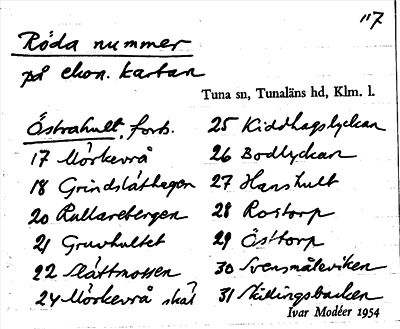 "7
Röda nummer
på ekon. kartan
Tuna sn, Tunaläns hd, Klm. l.
Östrahult, forts.
17 Mörkevrå
18 Grindslåthagen
20 Rallarebergen
21 Gruvhultet
22 Slåttmossen
24 Mörkevrå skål
25 Kiddhagslyckan
26 Bodlyckan
27 Hanshult
28 Rostorp
29 Östtorp
30 Svensmåleviken
31 Skillingsbacken
Ivar Modéer 1954